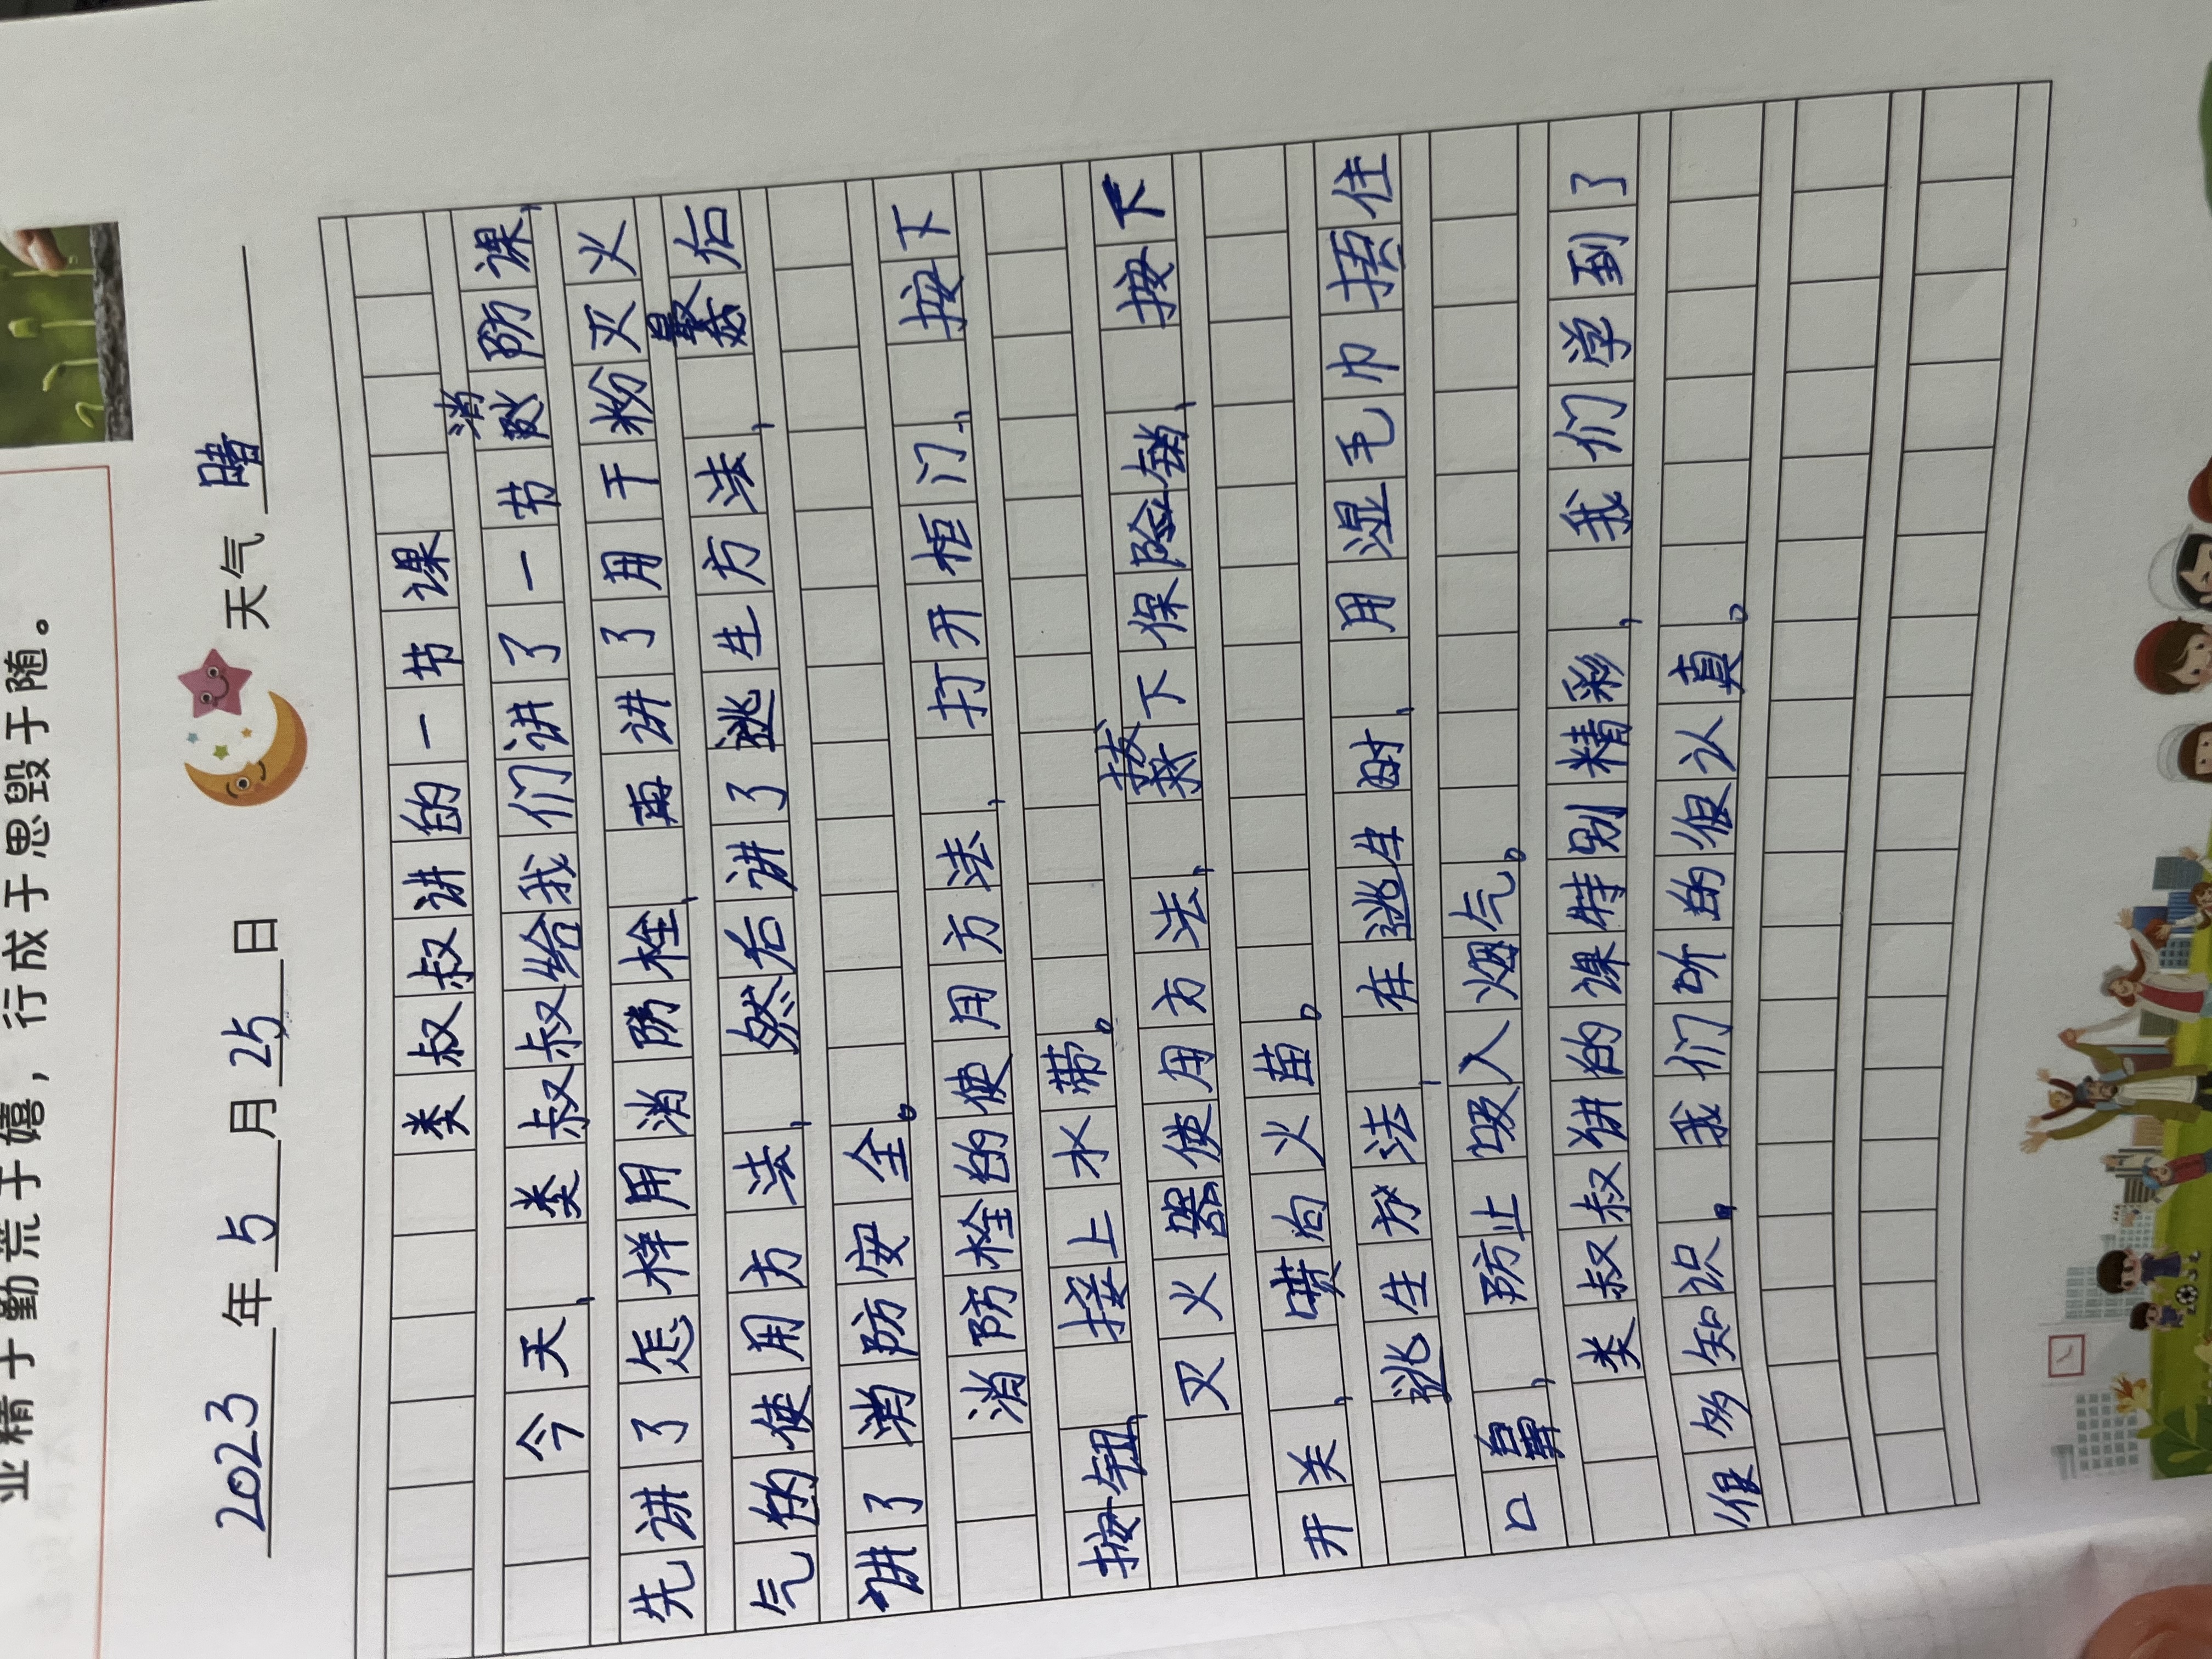 业精于勤荒于嬉，行成于思毁于随。
2023年5月25日 天气 晴
类叔叔讲的一节课
今天，类叔叔给我们讲了一节消防课，
先讲了怎样用消防栓，再讲了用干粉灭火
气的使用方法，然后讲了逃生方法，最后
讲了消防安全。
消防栓的使用方法，打开柜门，按下
按钮，接上水带。
灭火器使用方法，拔下保险销，按下
开关，喷向火苗。
逃生方法，在逃生时，用湿毛巾捂住
口鼻，防止吸入烟气。
类叔叔讲的课特别精彩，我们学到了
很多知识。我们听的很认真。